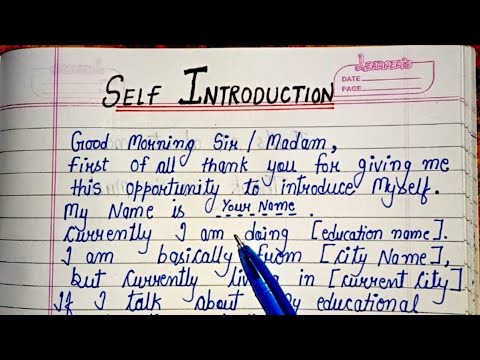 Learner's
DATE
PAGE
SELF INTRODUCTION
Good Morning Sir / Madam,
First of all thank you for giving me
this opportunity to introduce Myself.
My Name is Your Name.
Currently I am doing [education name].
I am basically from [City Name],
but currently in [current city]
If I talk about my educational